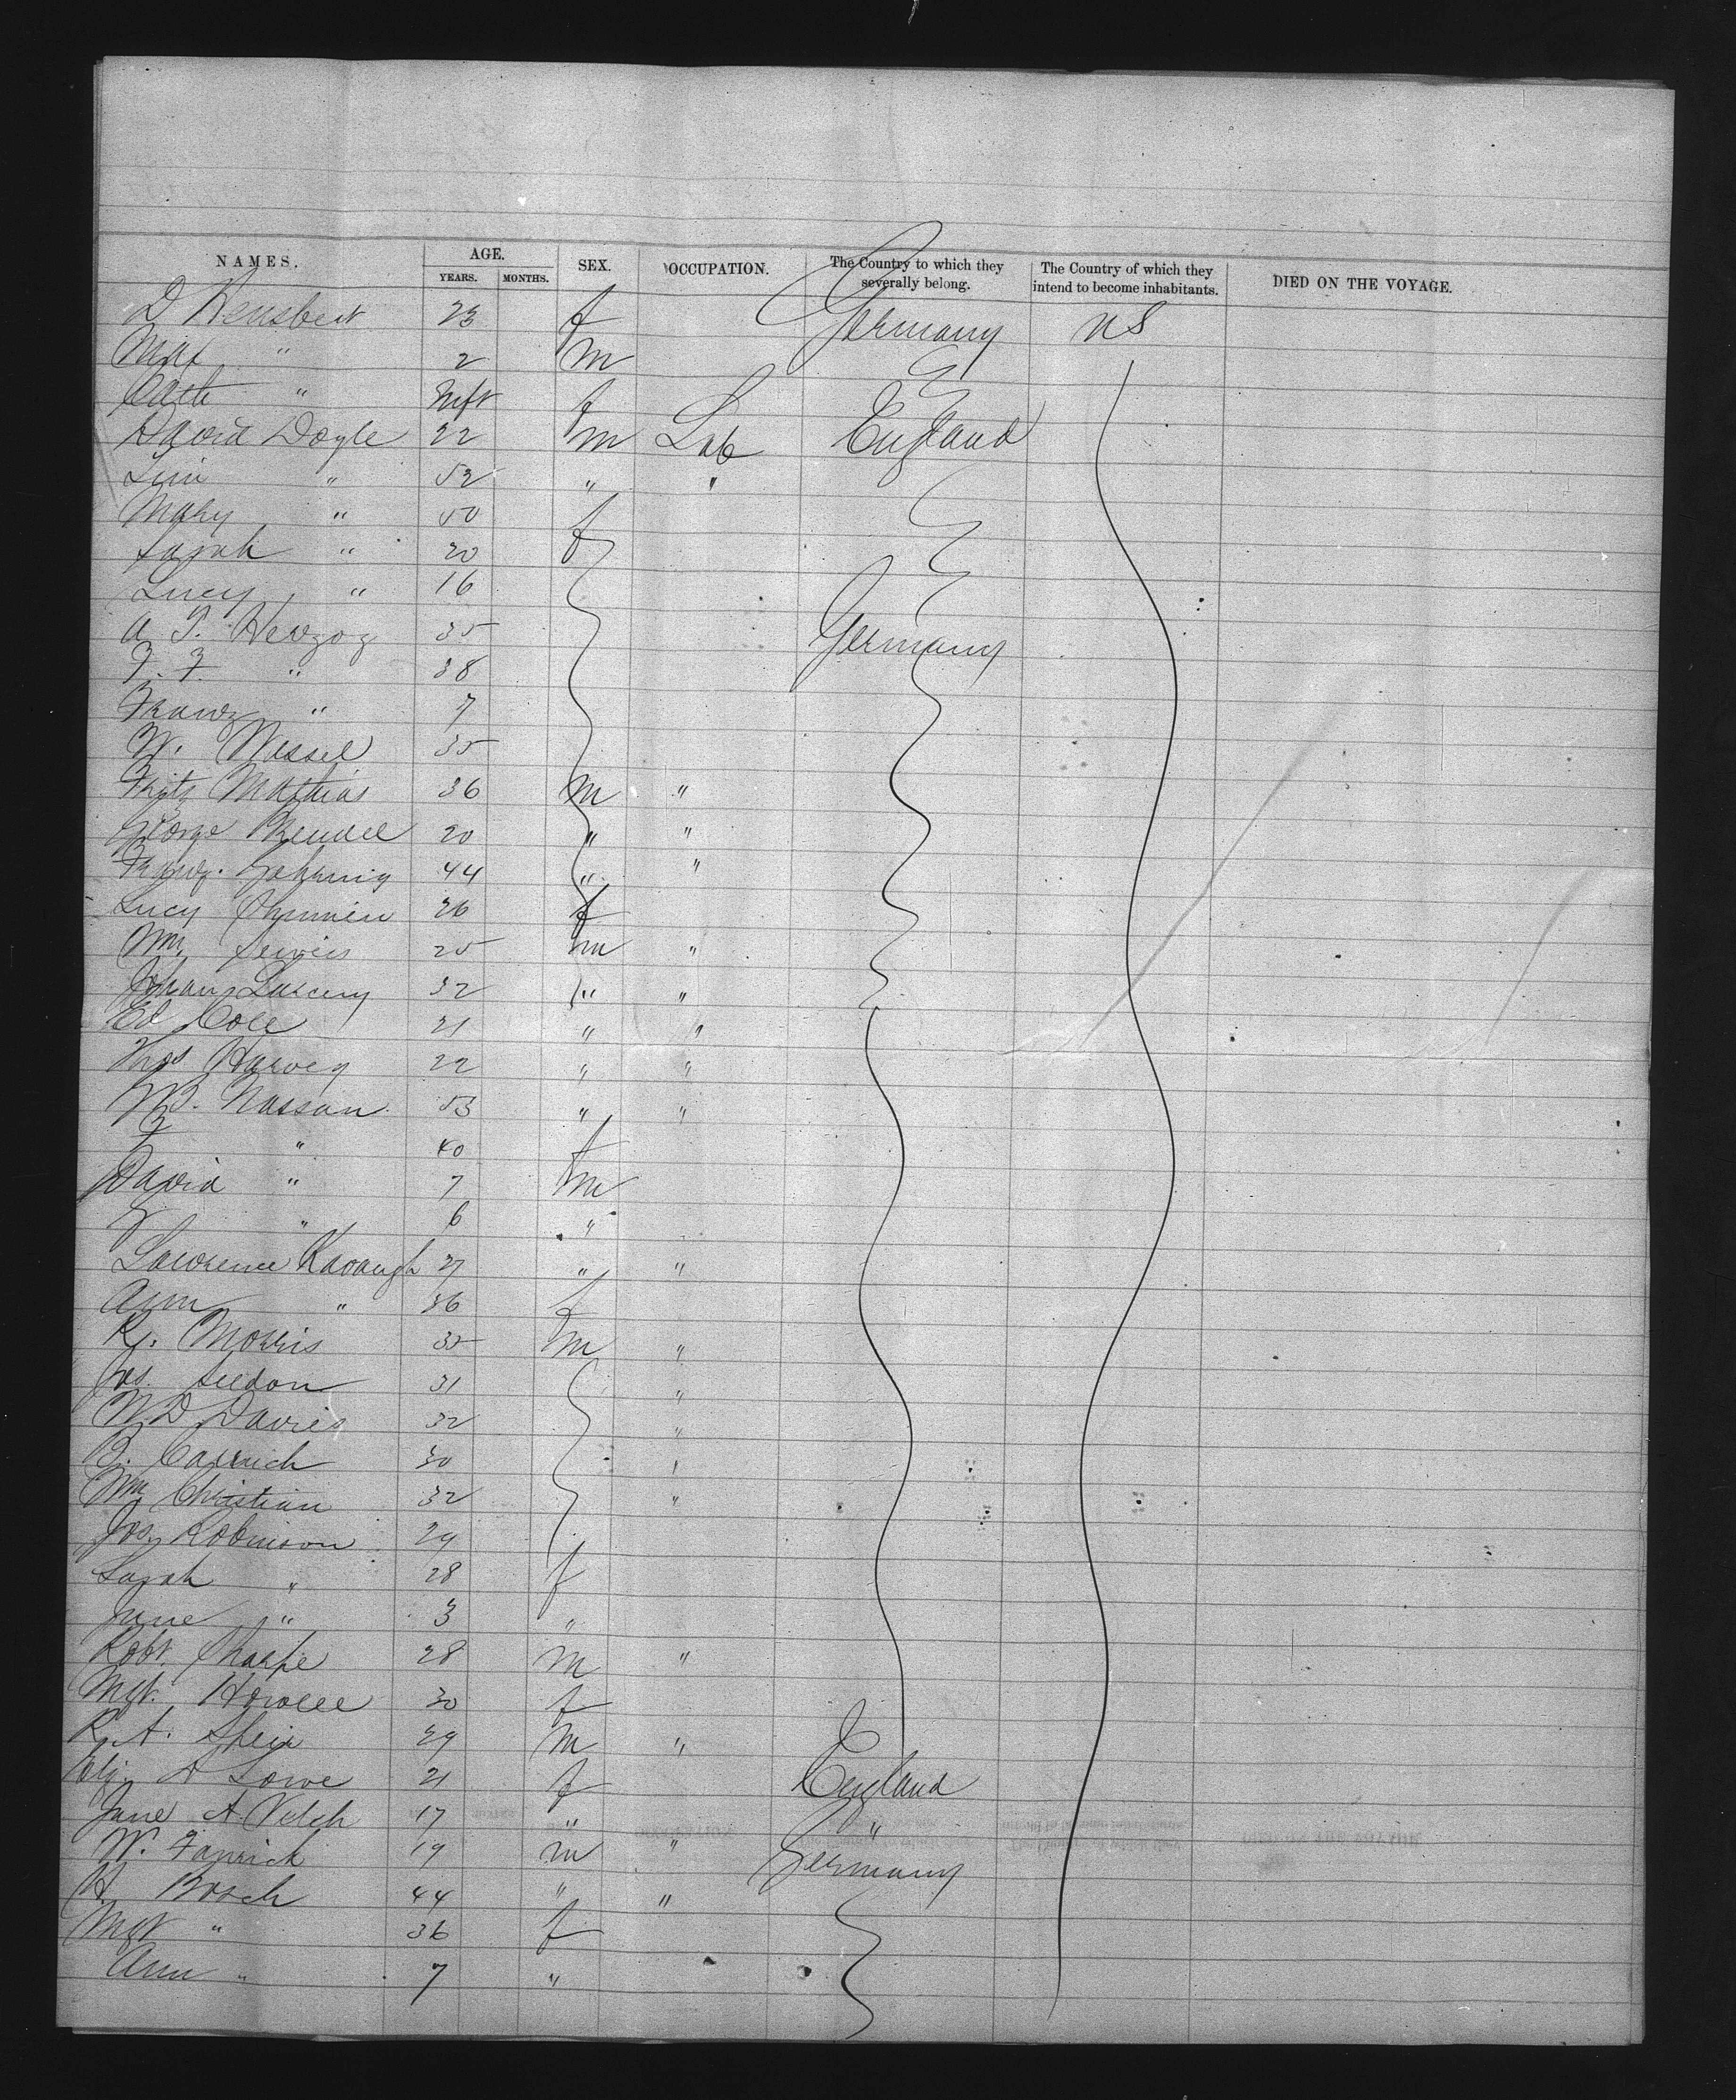 NAMES. AGE. SEX. OCCUPATION. The Country to which they severally belong. The Country of which they intend to become inhabitants. DIED ON THE VOYAGE.
YEARS. MONTHS.
D 23 f Germany US
" 2 m
Cath " Inft f
David Doyle 22 m Lab England
" 52 " "
Mary " 50 f
Sarah " 20
Lucy " 16
A T. Herzog 35 Germany
F. F. " 38
Franz " 7
W. Wessel 35
Fritz Mathias 36 m "
George 20 " "
Franz. 44 " "
Lucy 26 f
Wm. 25 m "
Johann 32 " "
Ed Cole 21 " "
Thos Harvey 22 " "
Nassau 53 " "
" 40 f
David " 7 m
" 6 "
Lawrence Kavaugh 27 " "
Ann " 36 f
R. Morris 35 m "
Jos. Seedon 31 "
W D Davies 32 "
B. 30 "
Wm Christian 32 "
Jos. Robinson 29
Sarah " 28 f
Jane " 3 "
Robt. Sharpe 28 m "
Mgt. Howell 30 f
R. A. 29 m "
Eliz. D Lowe 21 f England
Jane A. 17 " "
W. 19 m " Germany
H. Bosch 44 " "
Mgt " 36 f
Ann " 7 "